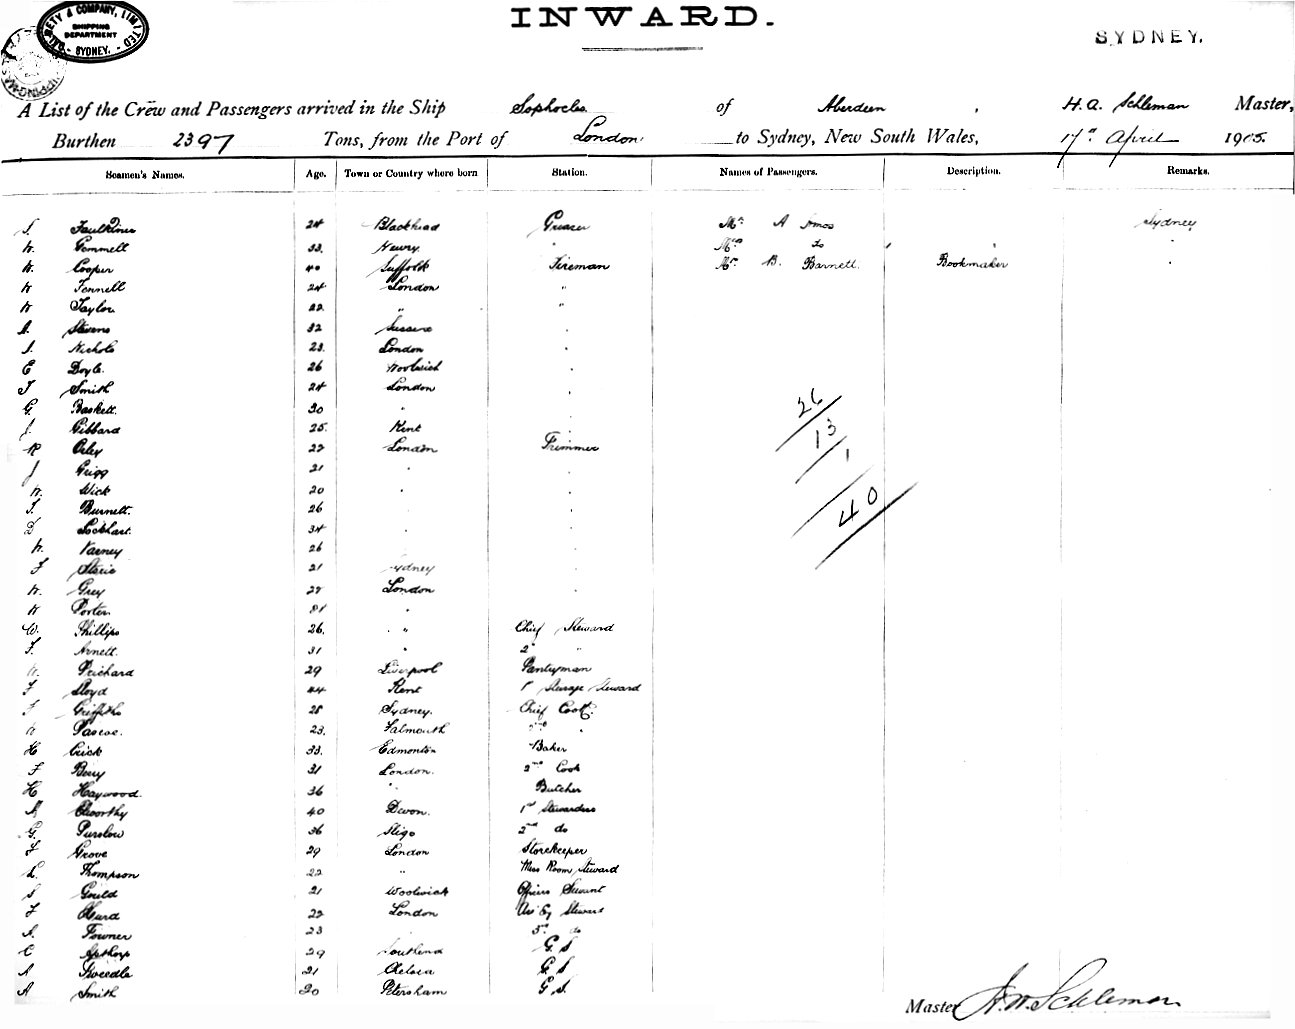 DALGETY & COMPANY, LIMITED
SHIPPING DEPARTMENT
SYDNEY.
INWARD.
SYDNEY.
A List of the Crew and Passengers arrived in the Ship Sophocles of Aberdeen, H. A. Schleman Master,
Burthen 2397 Tons, from the Port of London to Sydney, New South Wales, 17th April 1905.
Seamen's Names. Age. Town or Country where born Station. Names of Passengers. Description. Remarks.
Faulkiner 24 Blackhead Greaser Mr. A Amos Sydney
W. Gemmell 33. Newry. " Mrs do
W. Cooper 40 Suffolk Fireman Mr. B. Barnett. Bookmaker "
W Fennell 24 London "
W Taylor 22. " "
A. Stevens 32 Sussex "
Nichols 23. London "
E Doyle. 26 Woolwich "
T Smith 24 London "
G Baskett. 30 " "
J. Gibbard 25. Kent "
R Orley 22 London Trimmer
J Grigg 21 " "
W. Wick 20 " "
T. Burnett. 26 " "
D Lockhart. 34 " "
W. Varney 26 " "
F 21 Sydney "
W. Grey 22 London "
W Porter. "
W. Phillips 26. " Chief Steward
F. Arnett. 31 " 2nd "
W. Prichard 29 Liverpool Pantryman
F Lloyd 44 Kent 1st Steerage Steward
F Griffiths 28 Sydney. Chief Cook.
W Pascoe. 23. Falmouth "
H Crick 33. Edmonton Baker
F Berry 31 London. 2nd Cook
H Haywood. 36 " Butcher
Elworthy 40 Devon. 1st Stewardess
G. Purslow 36 Sligo 2nd do
F Grove 29 London Storekeeper
L. Thompson 22 " Mess Room Steward
S Gould 21 Woolwich Officers Servant
F Hurd 22 London Steward
A. Towner 23 " do
C Apthorp 29 Southend G. S
A Tweedle 21 Chelsea G. S
A Smith 20 Petersham G. S.
26
13
1
40
Master H. A. Schleman